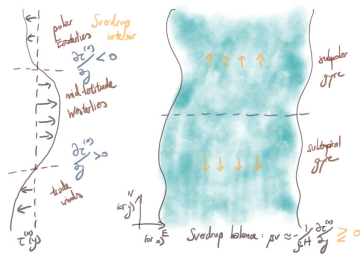 polar
Easterlies
Sverdrup
interior
∂τ⁽ˣ⁾/∂y < 0
mid-latitude
Westerlies
∂τ⁽ˣ⁾/∂y > 0
trade
winds
τ⁽ˣ⁾(y)
subpolar
gyre
subtropical
gyre
N
(or y)
E
(or x)
Sverdrup balance: βv ≈ - 1/ρH ∂τ⁽ˣ⁾/∂y ≷ 0